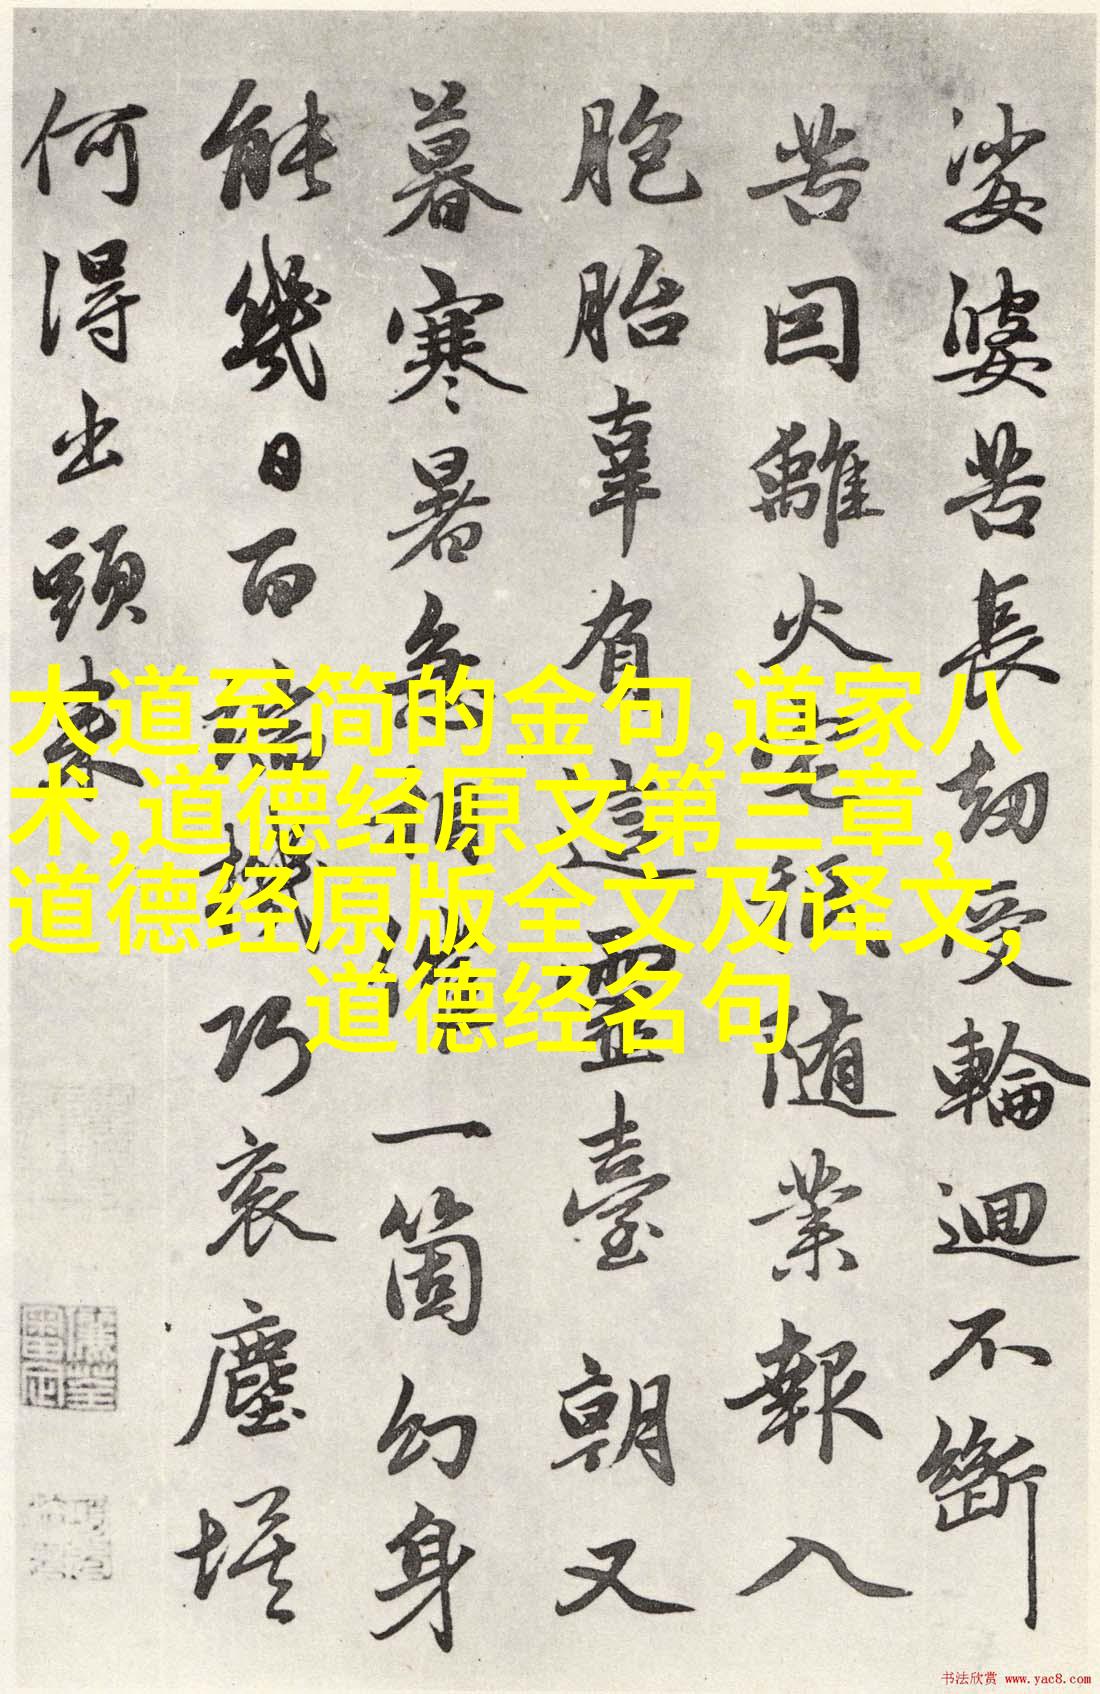 娑婆苦長劫受輪迴不斷
苦因離火宅秖随業報入
胞胎辜負這靈臺朝又
暮寒暑急相催一箇幻身
能幾日百端機巧衮塵埃
何得出頭來
大道至简的金句,道家八
术,道德经原文第三章,
道德经原版全文及译文,
道德经名句
书法欣赏 www.yac8.com